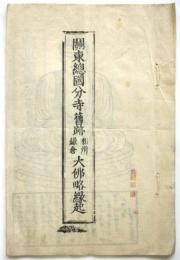 關東總國分寺舊跡相州鎌倉大佛略縁起